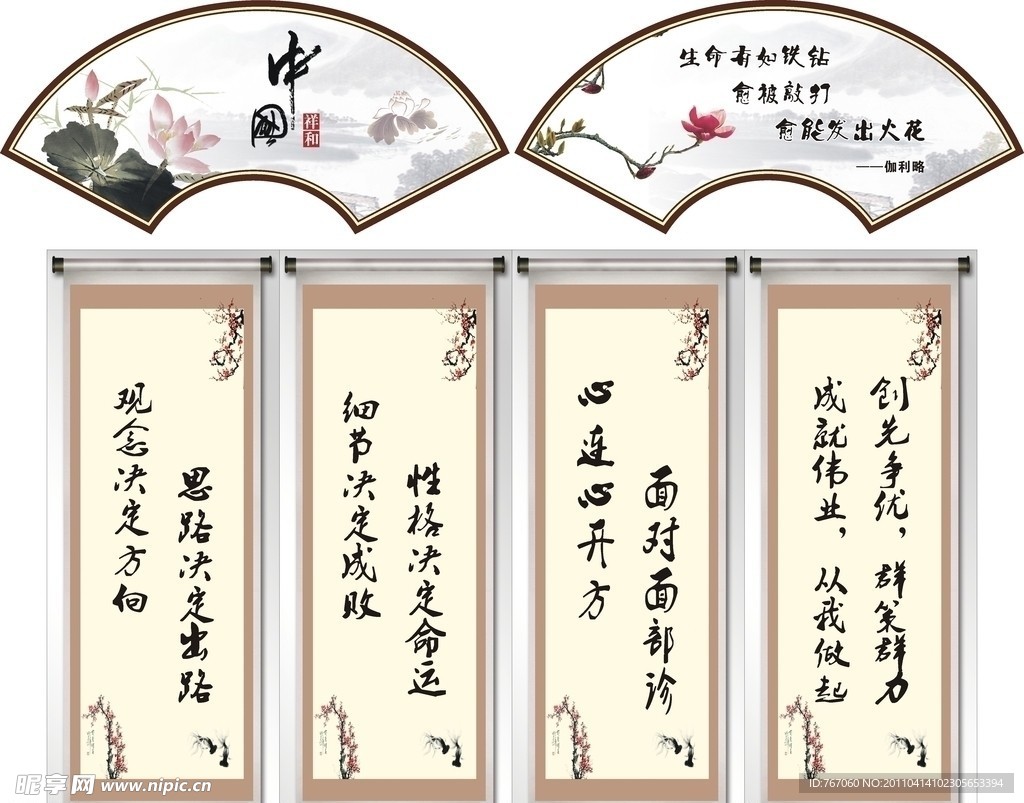 中國
祥和
生命有如铁钻
愈被敲打
愈能发出火花
——伽利略
观念决定方向
思路决定出路
细节决定成败
性格决定命运
心连心开方
面对面部诊
创先争优，群策群力
成就伟业，从我做起
昵享网 www.nipic.cn
ID:767060 NO:20110414102305653394